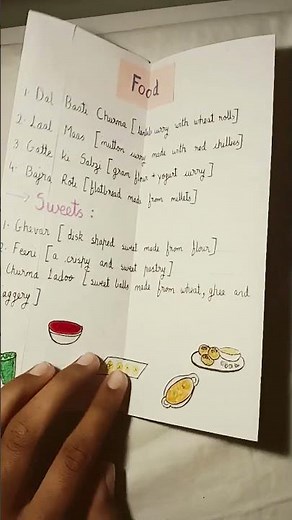 Food
1. Dal Baati Churma [lentil curry with wheat rolls]
2. Laal Maas [mutton curry made with red chillies]
3. Gatte Ki Sabzi [gram flour + yogurt curry]
4. Bajra Roti [flatbread made from millets]
→ Sweets :
1. Ghevar [disk shaped sweet made from flour]
2. Feeni [a crispy and sweet pastry]
Churma Ladoo [sweet balls made from wheat, ghee and
aggery]